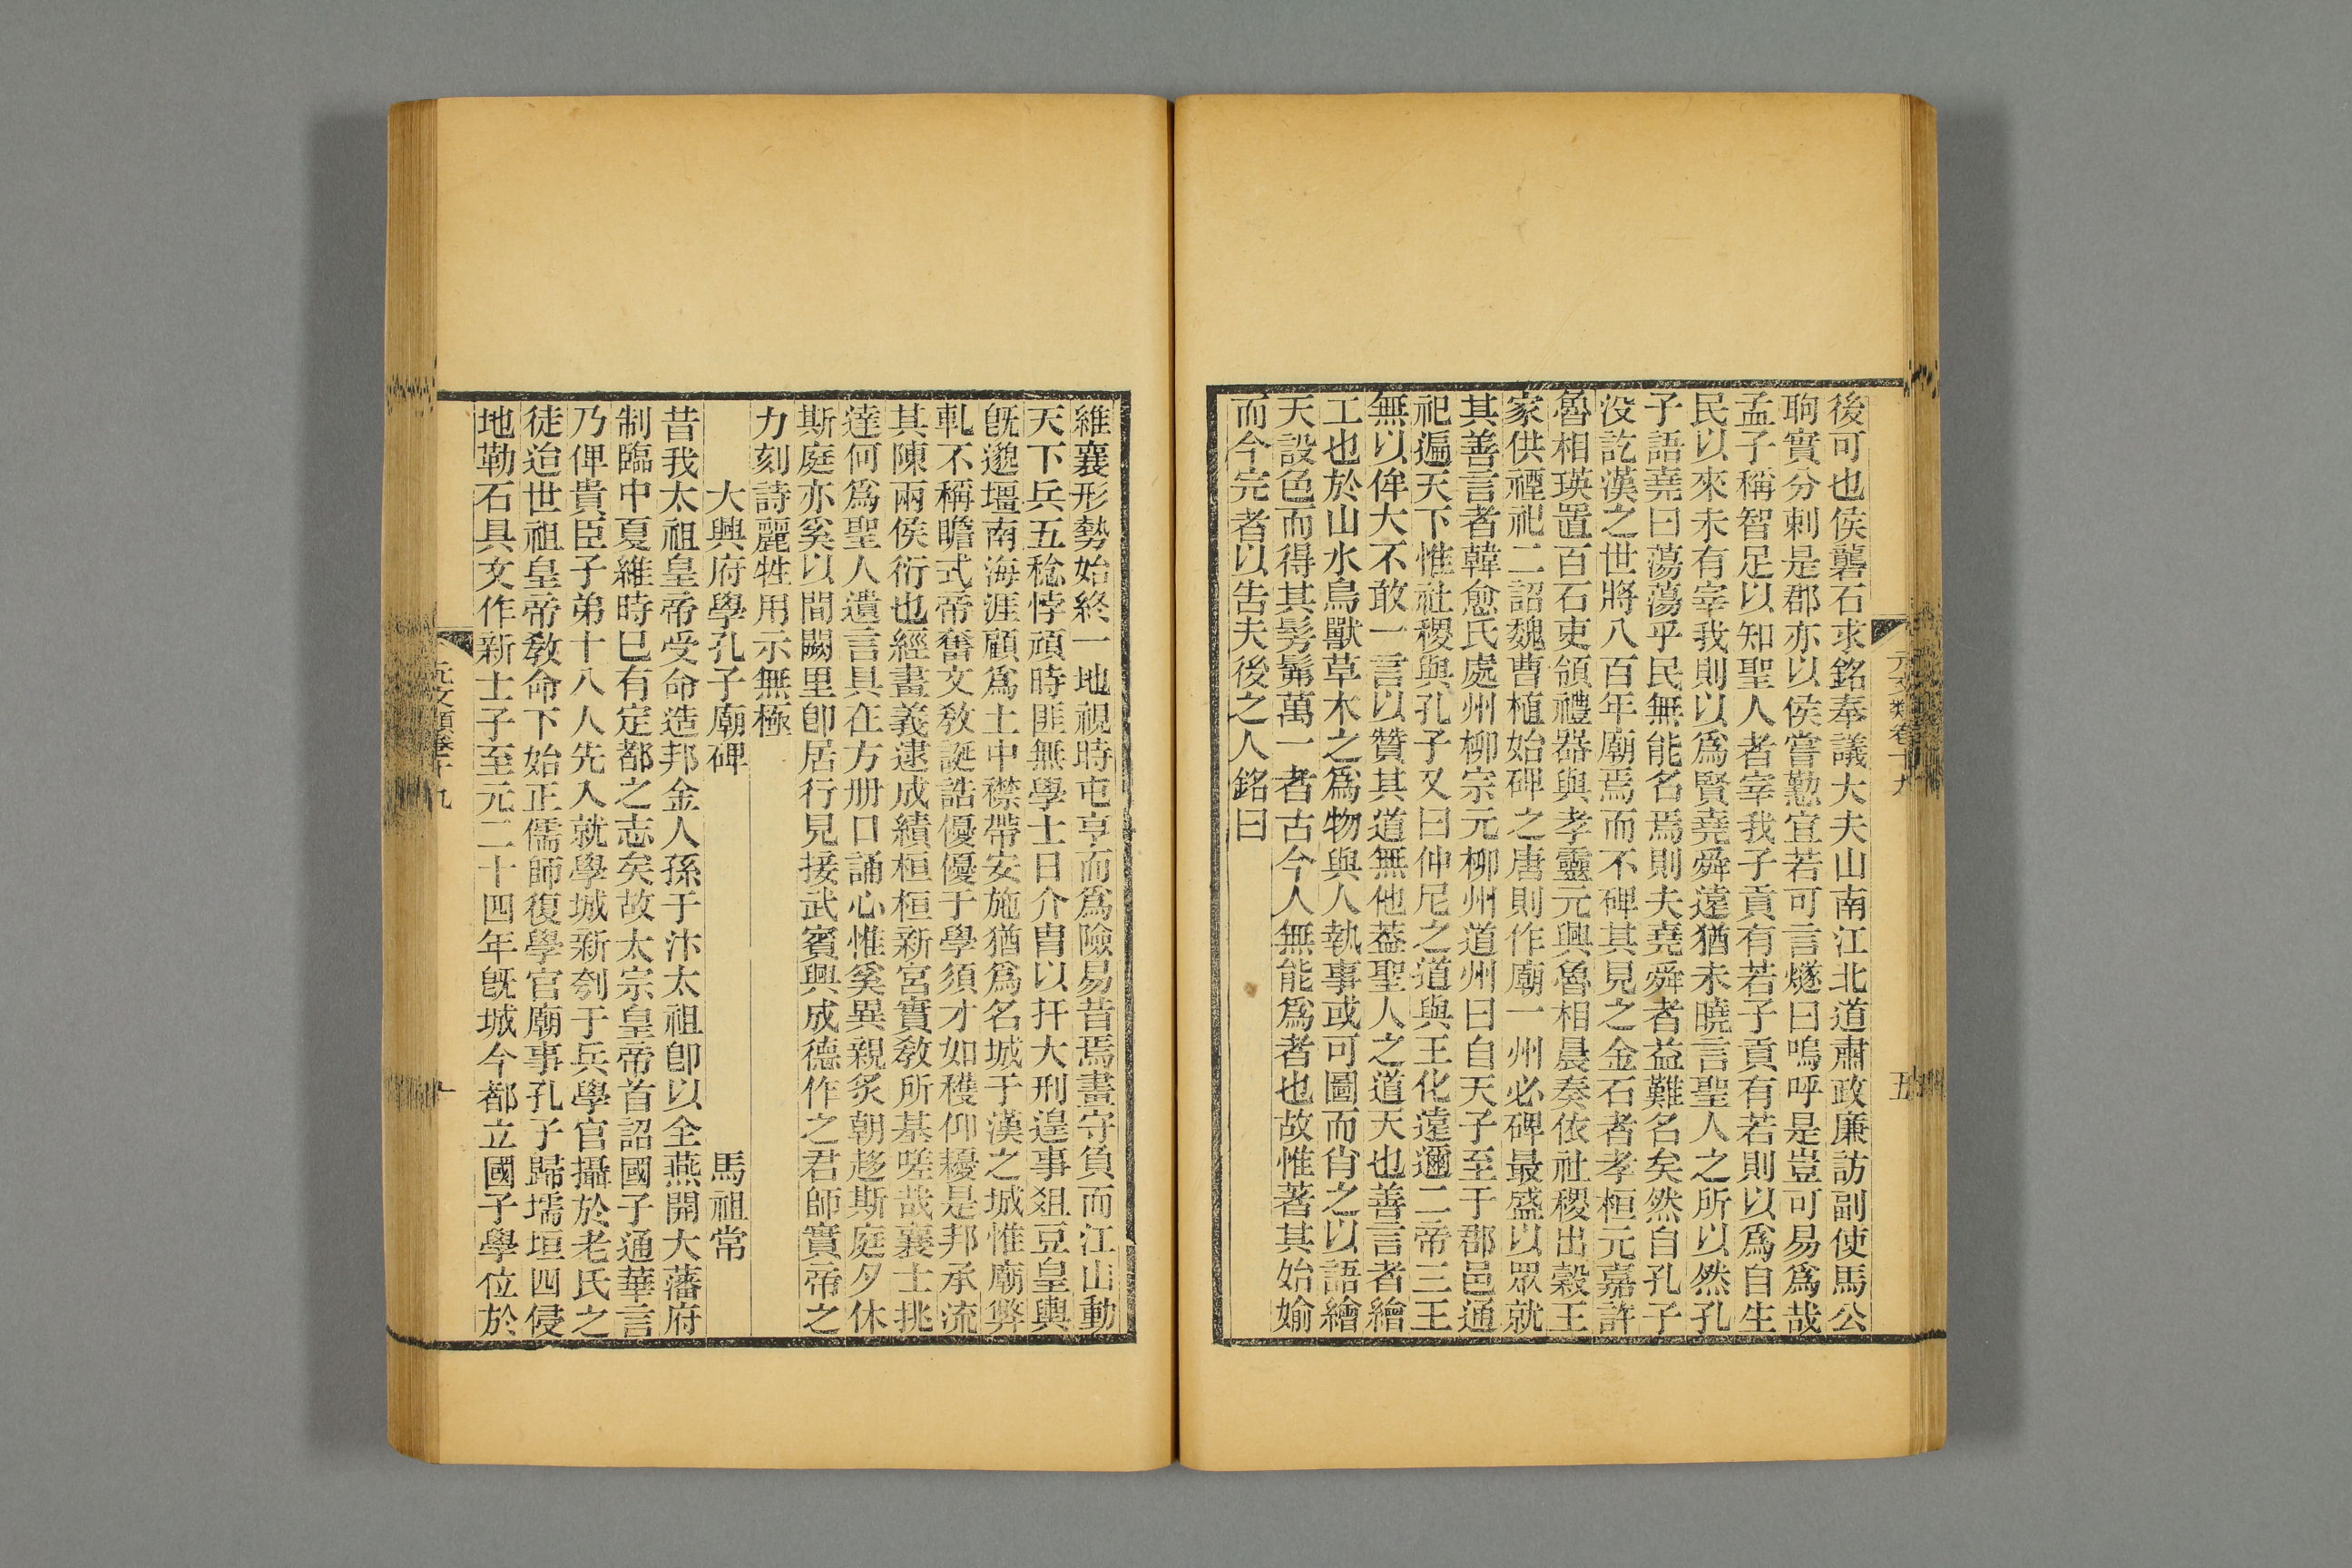 後可也侯礱石求銘奉議大夫山南江北道肅政廉訪副使馬公
珣實分刺是郡亦以侯嘗懃宜若可言燧曰嗚呼是豈可易爲哉
孟子稱智足以知聖人者宰我子貢有若子貢有若則以爲自生
民以來未有宰我則以爲賢堯舜遠猶未曉言聖人之所以然孔
子語堯曰蕩蕩乎民無能名焉則夫堯舜者益難名矣然自孔子
没訖漢之世將八百年廟焉而不碑其見之金石者孝桓元嘉許
魯相瑛置百石吏領禮器與孝靈元興魯相晨奏依社稷出穀王
家供禋祀二詔魏曹植始碑之唐則作廟一州必碑最盛以眾就
其善言者韓愈氏處州柳宗元柳州道州曰自天子至于郡邑通
祀遍天下惟社稷與孔子又曰仲尼之道與王化遠邇二帝三王
無以侔大不敢一言以贊其道無他葢聖人之道天也善言者繪
工也於山水鳥獸草木之爲物與人執事或可圖而肖之以語繪
天設色而得其髣髴萬一者古今人無能爲者也故惟著其始媮
而今完者以告夫後之人銘曰
元文類卷十九
五
維襄形勢始終一地視時屯亨而爲險易昔焉畫守負而江山動
天下兵五稔悖頑時匪無學士日介胄以扞大刑遑事爼豆皇輿
旣邈壃南海涯顧爲土中襟帶安施猶爲名城于漢之城惟廟弊
軋不稱瞻式帝奮文敎誕誥優優于學須才如穫仰耰是邦承流
其陳兩侯衍也經畫義逮成績桓桓新宮實敎所基嗟哉襄士挑
達何爲聖人遺言具在方册口誦心惟奚異親炙朝趍斯庭夕休
斯庭亦奚以間闕里卽居行見接武賓興成德作之君師實帝之
力刻詩麗牲用示無極
大興府學孔子廟碑　馬祖常
昔我太祖皇帝受命造邦金人孫于汴太祖卽以全燕開大藩府
制臨中夏維時巳有定都之志矣故太宗皇帝首詔國子通華言
乃俾貴臣子弟十八人先入就學城新刳于兵學官攝於老氏之
徒迨世祖皇帝敎命下始正儒師復學官廟事孔子歸壖垣四侵
地勒石具文作新士子至元二十四年旣城今都立國子學位於
元文類卷十九